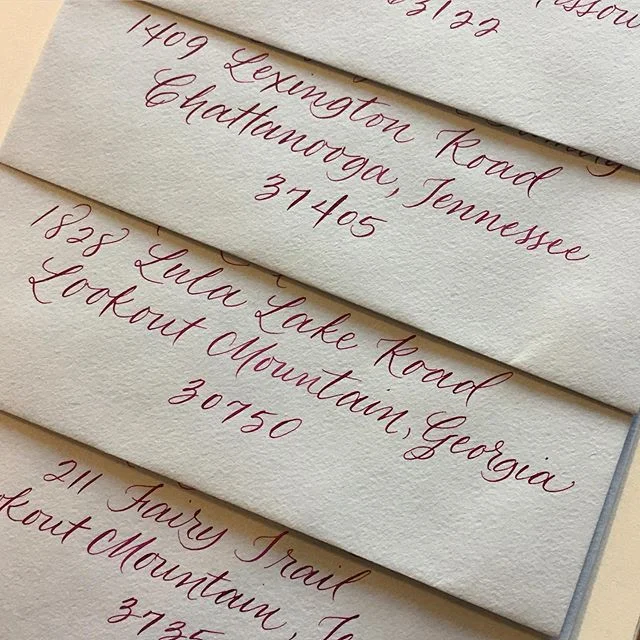 1409 Lexington Road
Chattanooga, Tennessee
37405
1828 Lula Lake Road
Lookout Mountain, Georgia
30750
211 Fairy Trail
Mountain,